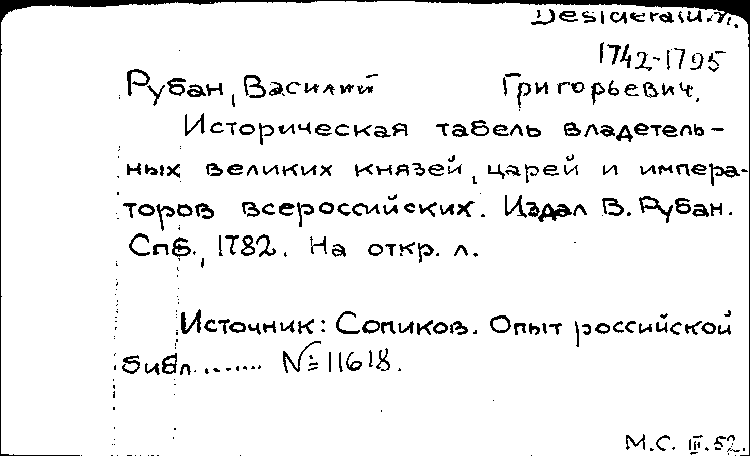 Desideratum.
1742-1795
Рубан, Василий Григорьевич.
Историческая табель владетель-
ных великих князей, царей и импера-
торов всероссийских. Издал В. Рубан.
Спб., 1782. На откр. л.
Источник: Сопиков. Опыт российской
библ....... № 11618.
М.С. III.52.